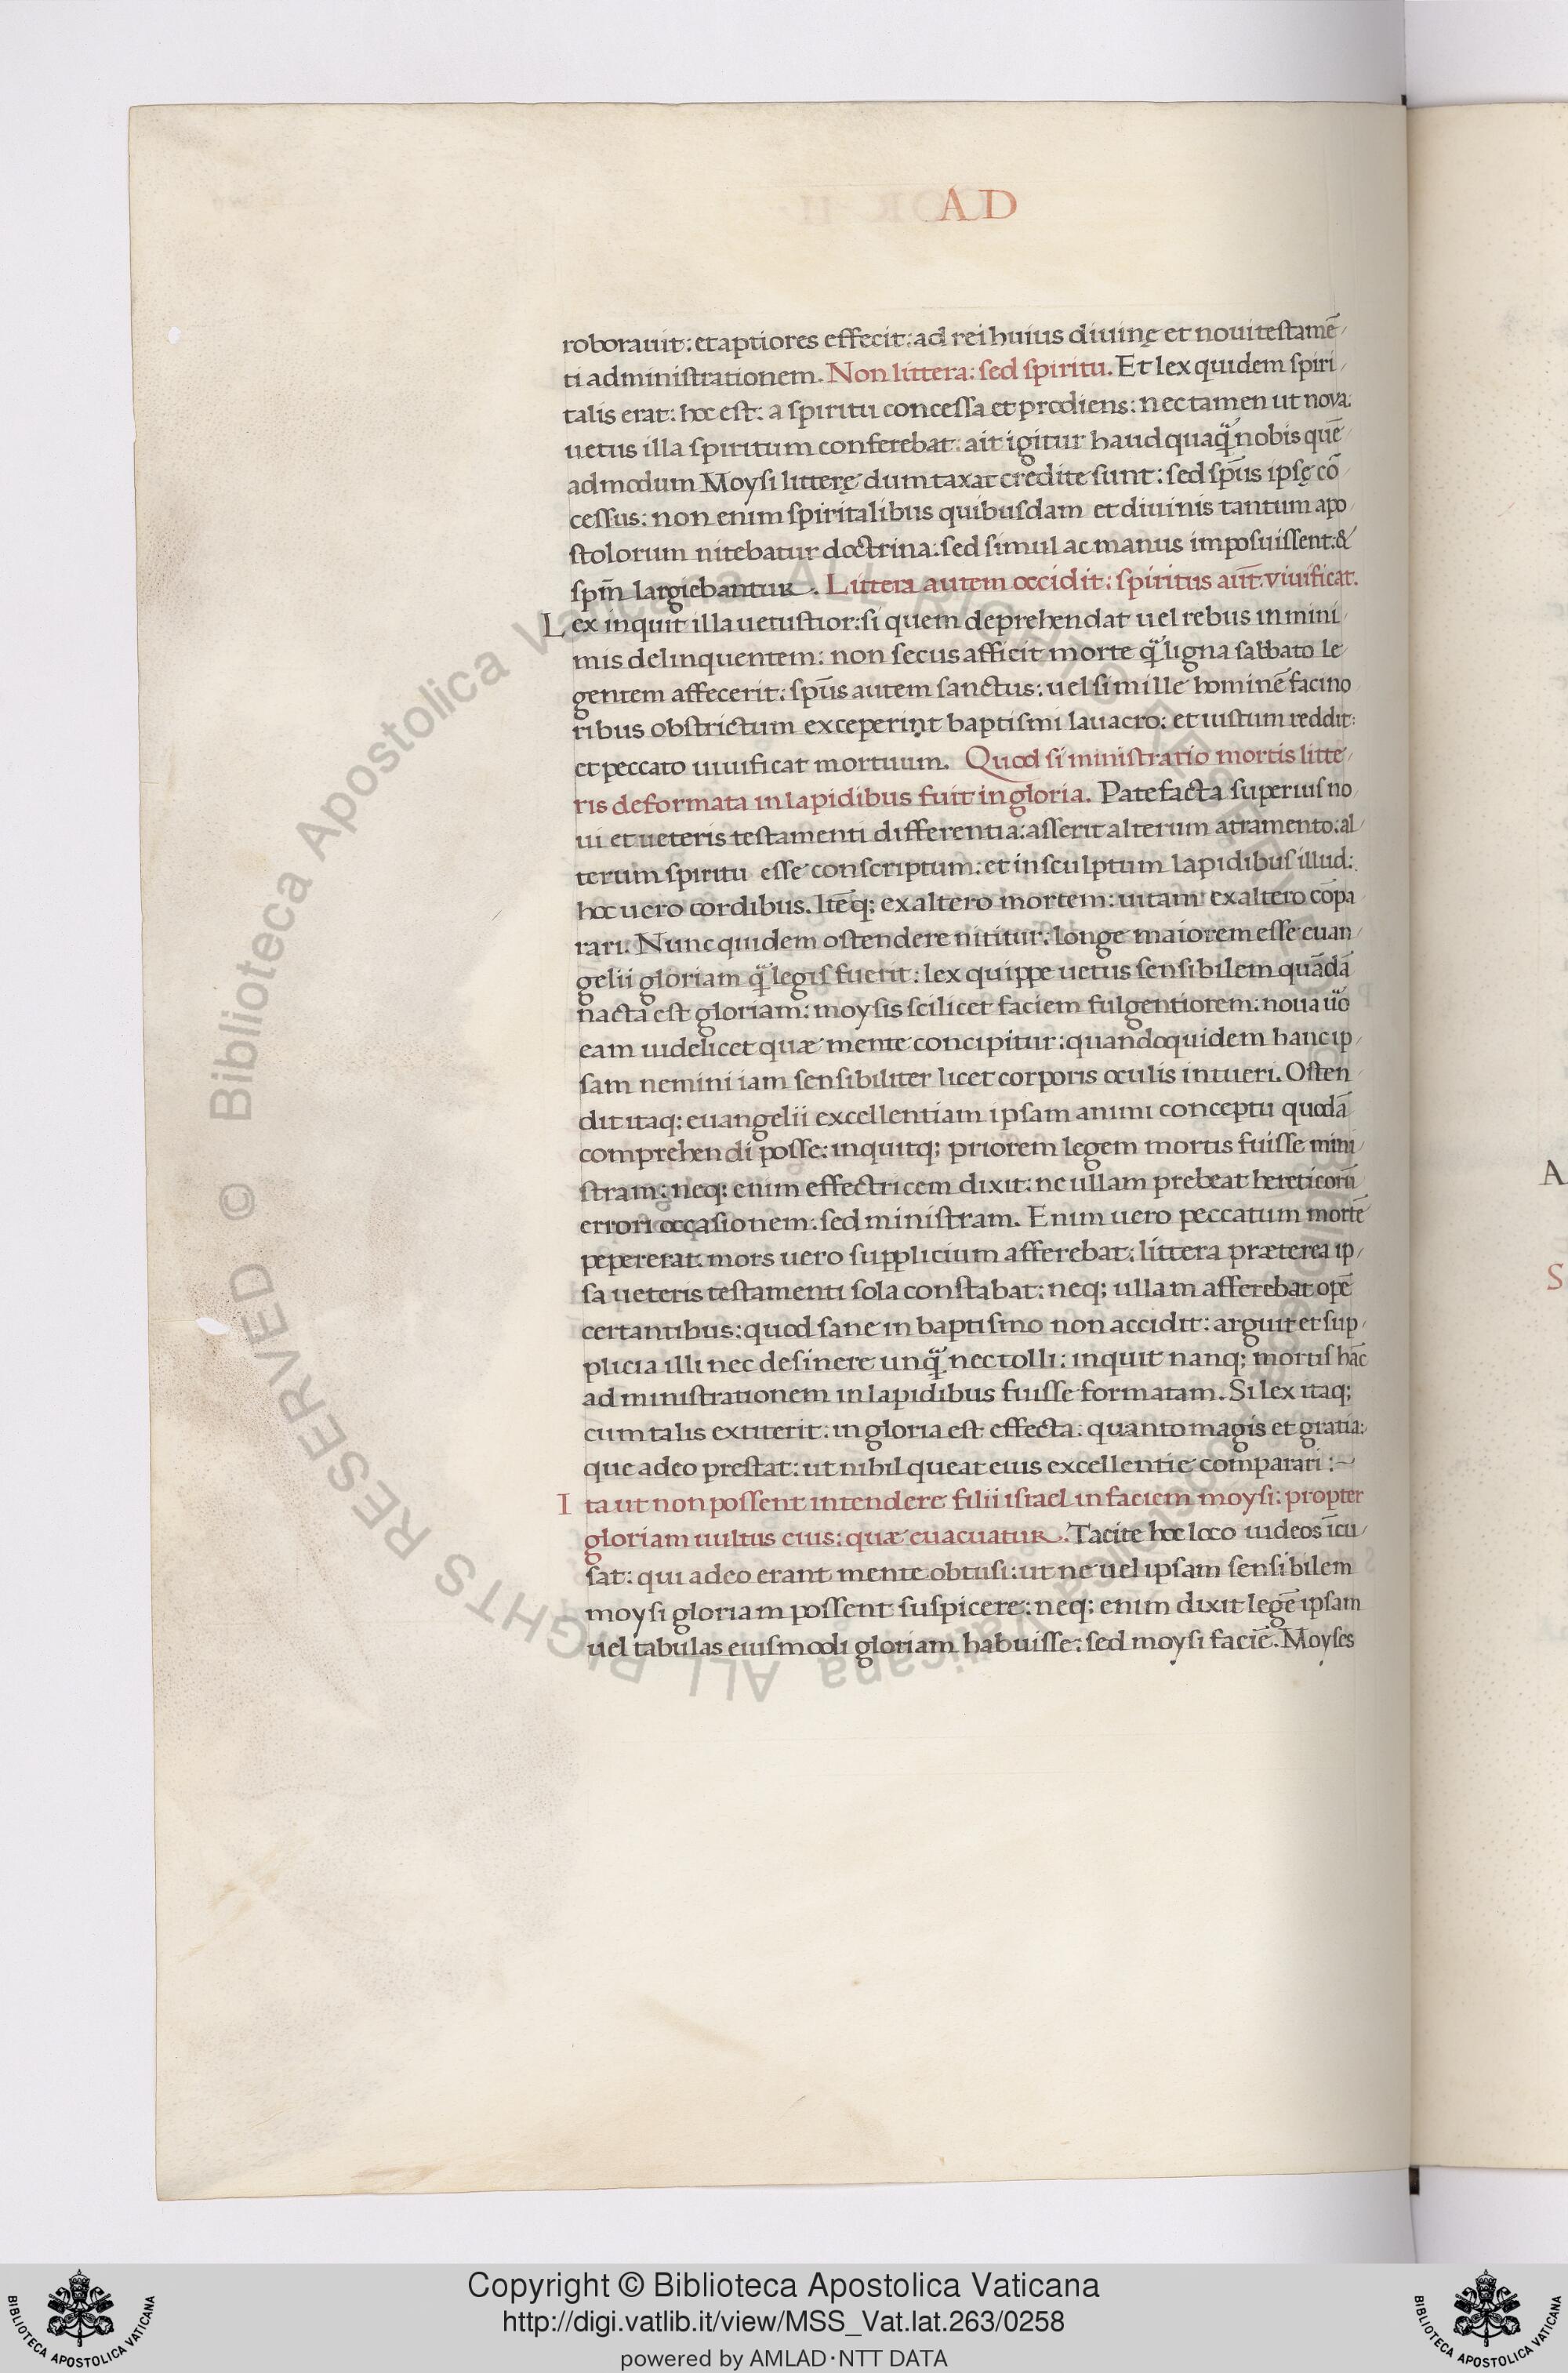 AD
roborauit: et aptiores effecit: ad rei huius diuinę et noui testamē
ti administrationem. Non littera: sed spiritu. Et lex quidem spiri
talis erat: hoc est: a spiritu concessa et prodiens: nec tamen ut nova
uetus illa spiritum conferebat: ait igitur haud quaq̃ nobis quē
admodum Moysi litterę dumtaxat credite sunt: sed sp̄us ipsę cō
cessus: non enim spiritalibus quibusdam et diuinis tantum apo
stolorum nitebatur doctrina: sed simul ac manus imposuissent: &
spm̄ largiebantur. Littera autem occidit: spiritus aut̄ viuificat.
Lex inquit illa uetustior: si quem deprehendat uel rebus in mini
mis delinquentem: non secus afficit morte q̃ ligna sabbato le
gentem affecerit: sp̄us autem sanctus: uel si mille hominē facino
ribus obstrictum exceperiṇt baptismi lauacro: et iustum reddit:
et peccato uiuificat mortuum. Quod si ministratio mortis litte
ris deformata in lapidibus fuit in gloria. Patefacta superius no
ui et ueteris testamenti differentia: asserit alterum atramento: al
terum spiritu esse conscriptum: et insculptum lapidibus illud:
hoc uero cordibus. Itēq; ex altero mortem: uitam ex altero cōpa
rari. Nunc quidem ostendere nititur: longe maiorem esse euan
gelii gloriam q̃ legis fuerit: lex quippe uetus sensibilem quādā
nacta est gloriam: moysis scilicet faciem fulgentiorem: noua uō
eam uidelicet quæ mente concipitur: quandoquidem hanc ip
sam nemini iam sensibiliter licet corporis oculis intueri. Osten
dit itaq; euangelii excellentiam ipsam animi conceptu quodā
comprehendi posse: inquitq; priorem legem mortis fuisse mini
stram: neq; enim effectricem dixit: ne ullam prebeat hereticorū
errori occasionem: sed ministram. Enim uero peccatum mortē
pepererat: mors uero supplicium afferebat: littera præterea ip
sa ueteris testamenti sola constabat: neq; ullam afferebat opē
certantibus: quod sane in baptismo non accidit: arguit et sup
plicia illi nec desinere unq̃ nec tolli: inquit nanq; mortis hāc
administrationem in lapidibus fuisse formatam. Si lex itaq;
cum talis extiterit: in gloria est effecta: quanto magis et gratia:
que adeo prestat: ut nihil queat eius excellentie comparari:~
Ita ut non possent intendere filii israel in faciem moysi: propter
gloriam uultus eius: quæ euacuatur. Tacite hoc loco iudeos īcu
sat: qui adeo erant mente obtusi: ut ne uel ipsam sensibilem
moysi gloriam possent suspicere: neq; enim dixit legē ipsam
uel tabulas eiusmodi gloriam habuisse: sed moysi faciē. Moyses
A
S
© Biblioteca Apostolica Vaticana ALL RIGHTS RESERVED
Copyright © Biblioteca Apostolica Vaticana
http://digi.vatlib.it/view/MSS_Vat.lat.263/0258
powered by AMLAD·NTT DATA
BIBLIOTECA APOSTOLICA VATICANA
BIBLIOTECA APOSTOLICA VATICANA